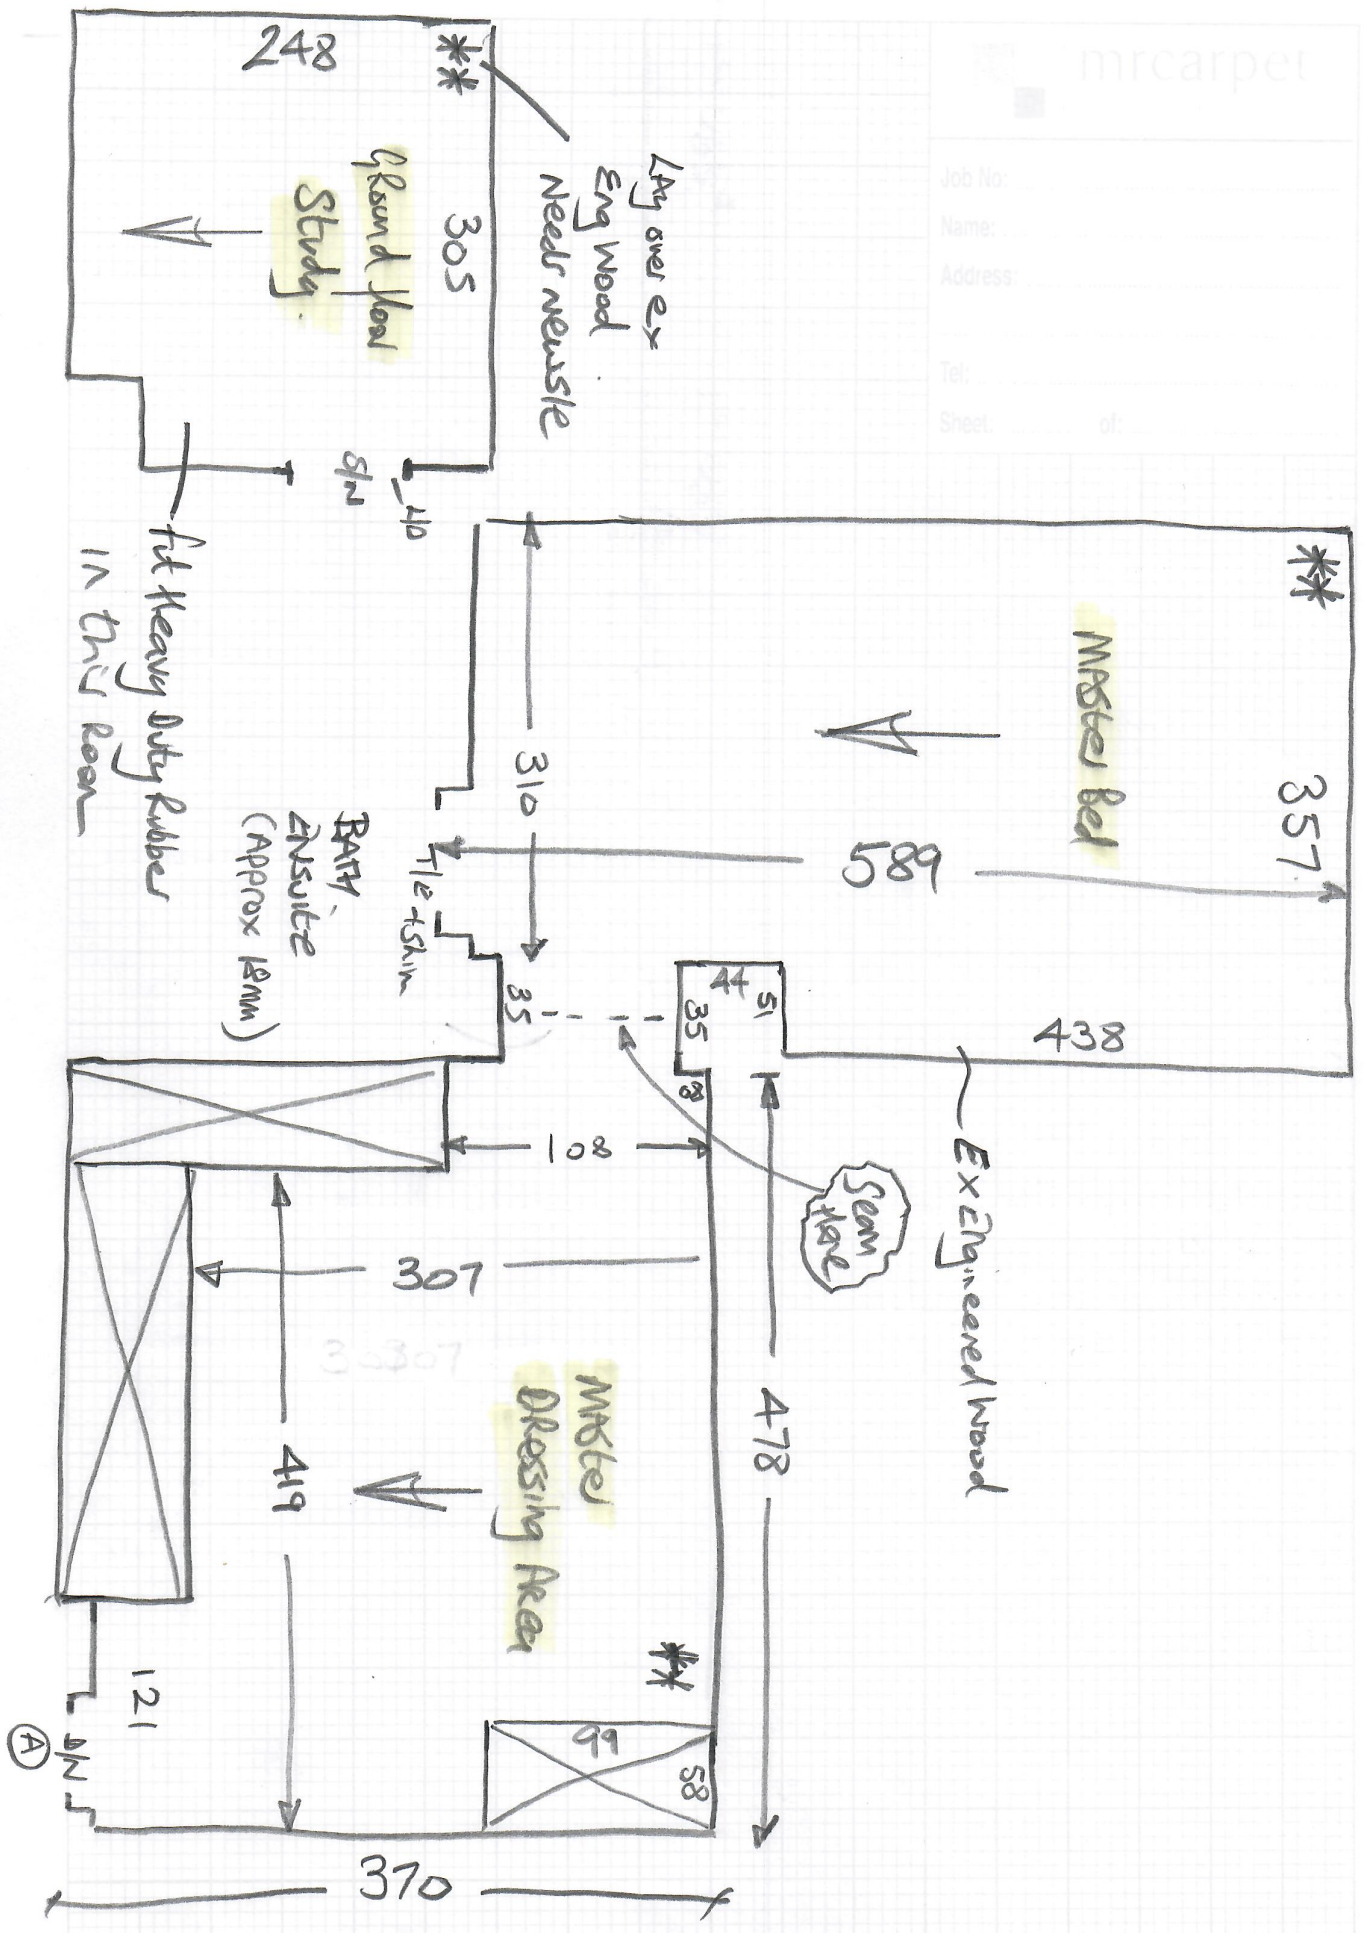 mrcarpet
Job No:
Name:
Address:
Tel:
Sheet: of:
248
**
305
Ground floor
Study.
Lay over ex
Eng Wood
Needs new S/E
S/N
H/D
fit Heavy Duty Rubber
in this Room
**
Master Bed
357
310
589
T/E + Shim
BATH.
ENSUITE
(Approx 18mm)
35
44
51
35
8
438
Ex Engineered Wood
Seam
Here
108
307
478
419
Master
Dressing Area
**
99
58
121
S/N
A
370